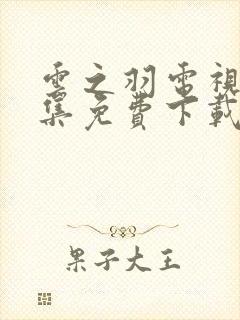 雲之羽電視
集免費下載
果子大王